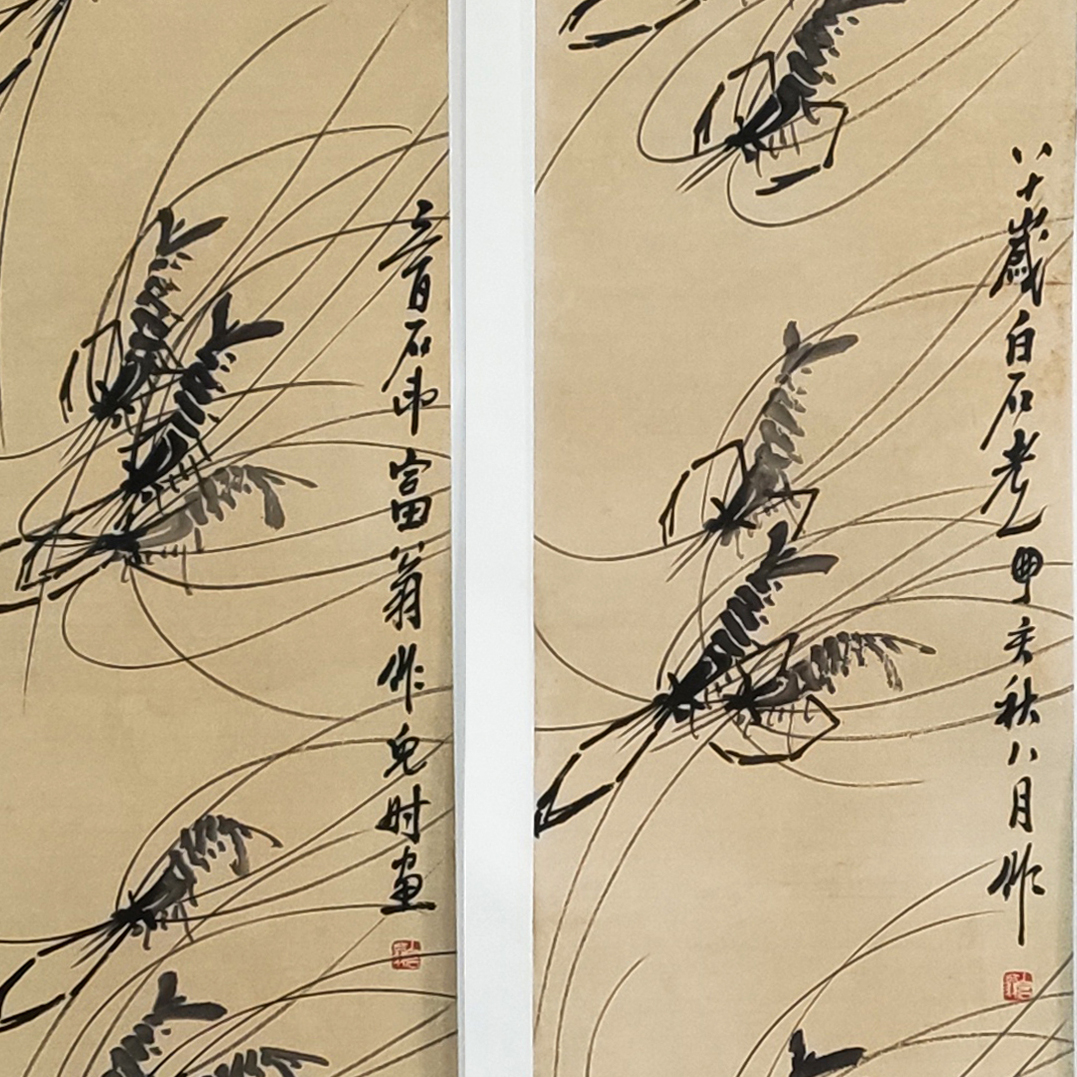 八十歲白石老人甲亥秋八月作
三百石印富翁作兒时畫